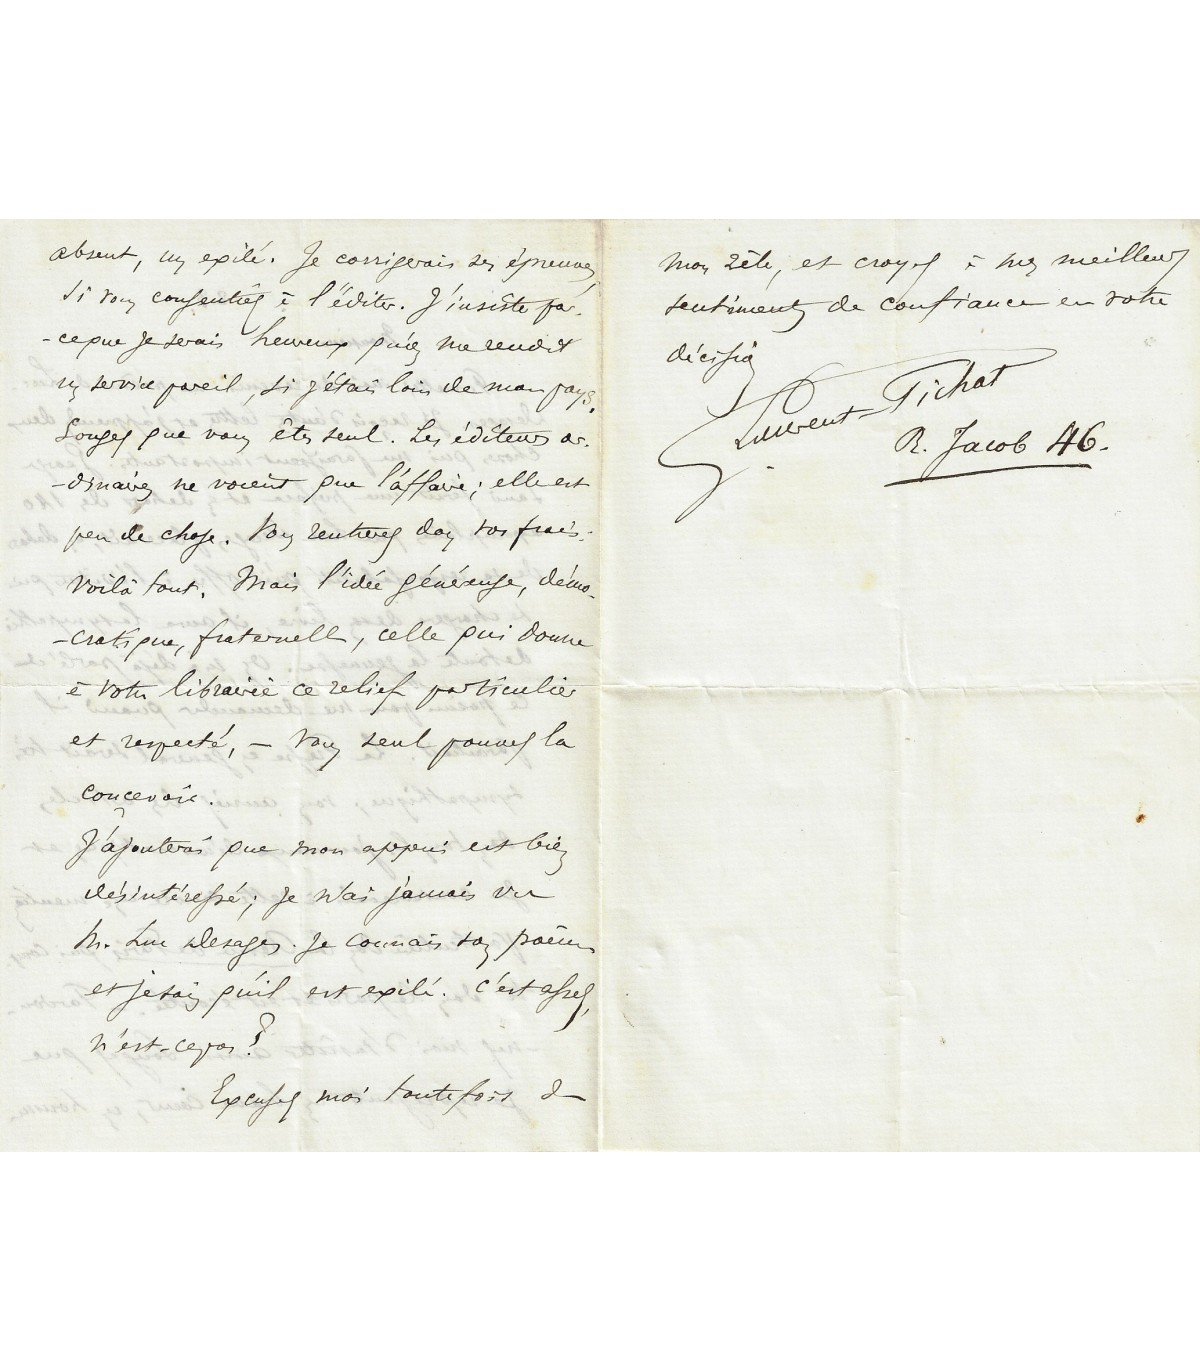 absent, un exilé. Je corrigerais ses épreuves,
si vous consentiez à l'éditer. J'insiste par-
-ceque je serais heureux qu'on me rendit
un service pareil, si j'étais loin de mon pays.
Songez que vous êtes seul. Les éditeurs or-
-dinaires ne voient que l'affaire; elle est
peu de chose. Vous rentrerez dans vos frais:
voilà tout. Mais l'idée généreuse, démo-
-cratique, fraternelle, celle qui donne
à votre librairie ce relief particulier
et respecté, — vous seul pouvez la
concevoir.
J'ajouterai que mon appui est bien
désintéressé; je n'ai jamais vu
M. Luc Desages. Je connais son poème
et je sais qu'il est exilé. C'est assez,
n'est-ce pas?
Excusez moi toutefois de
mon zèle, et croyez à mes meilleurs
sentiments de confiance en votre
décision
Laurent-Pichat
R. Jacob 46.